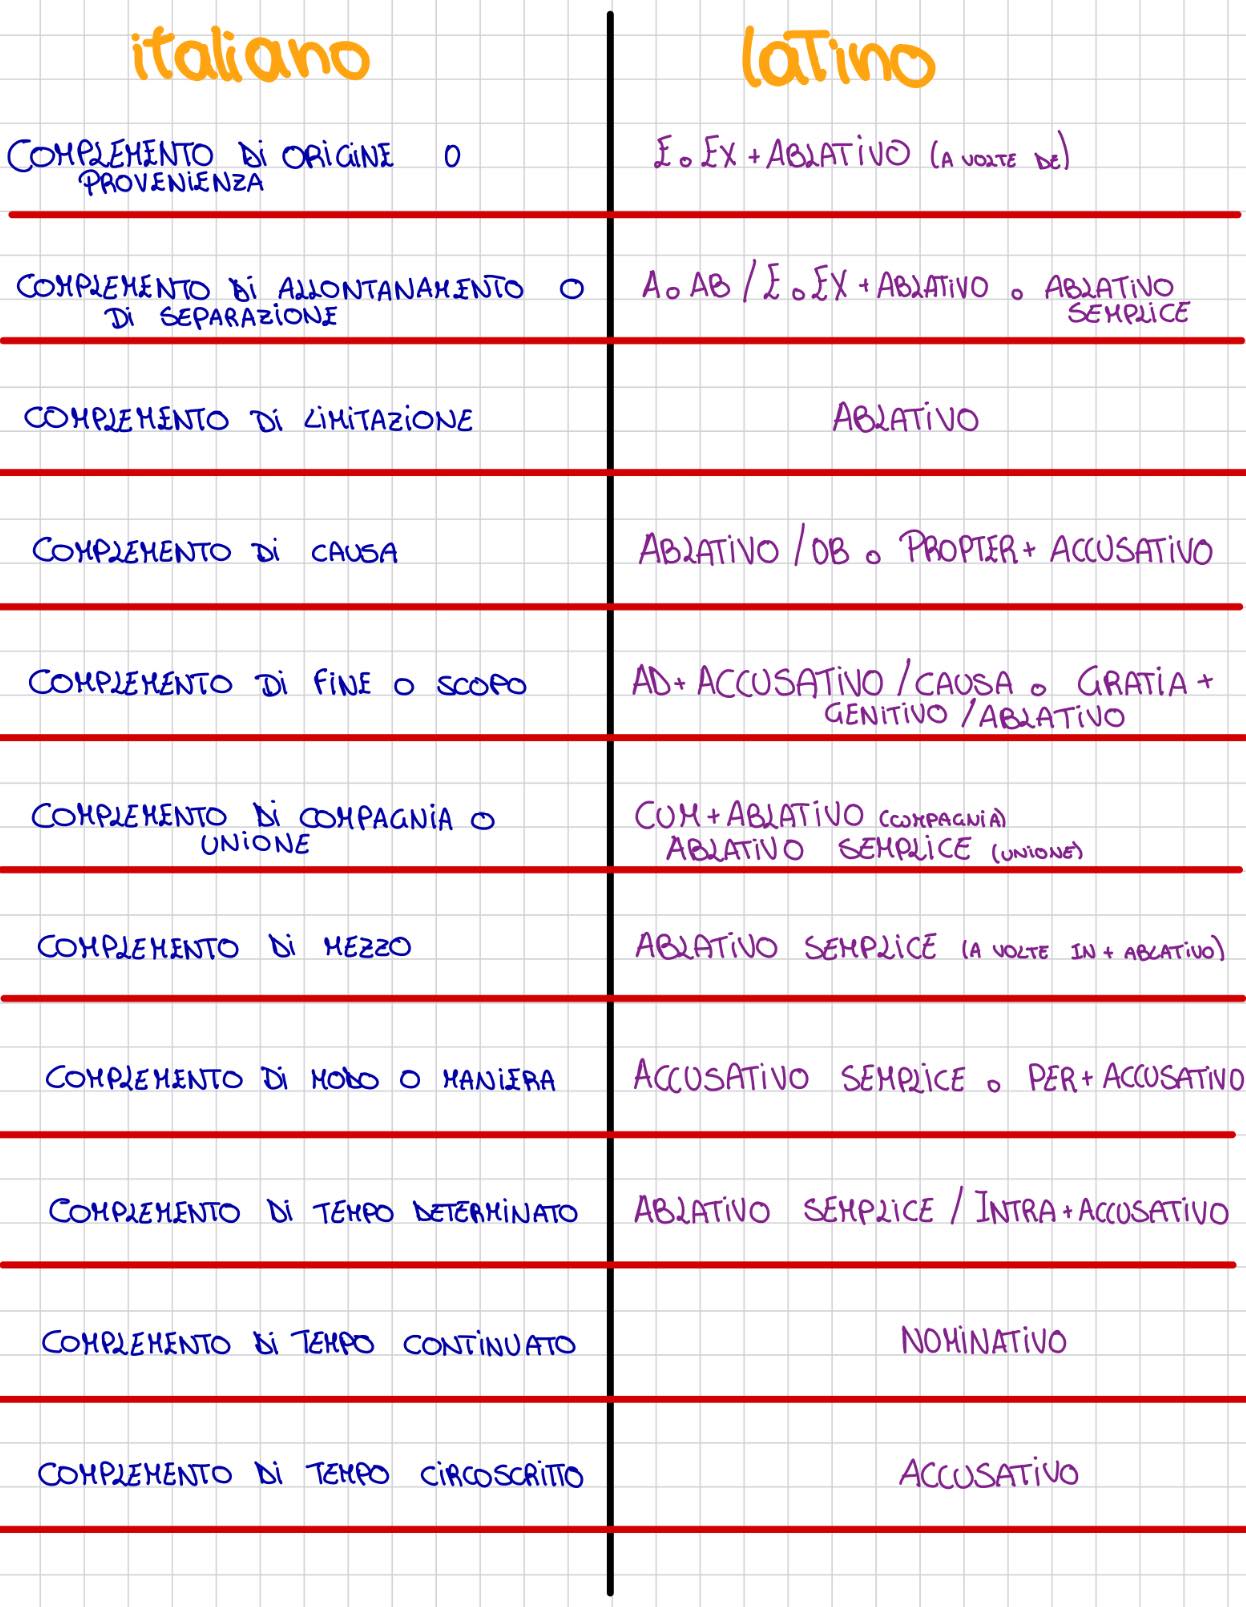 italiano
laTino
COMPLEMENTO Di ORiGiNE O
PROVENiENZA
E o EX + ABLATiVO (A VOLTE DE)
COMPLEMENTO Di ALLONTANAMENTO O
Di SEPARAZiONE
A o AB / E o EX + ABLATiVO o ABLATiVO
SEMPLiCE
COMPLEMENTO Di LiMiTAZiONE
ABLATiVO
COMPLEMENTO Di CAUSA
ABLATiVO / OB o PROPTER + ACCUSATiVO
COMPLEMENTO Di FiNE O SCOPO
AD + ACCUSATiVO / CAUSA o GRATiA +
GENiTiVO / ABLATiVO
COMPLEMENTO Di COMPAGNiA O
UNiONE
CUM + ABLATiVO (COMPAGNiA)
ABLATiVO SEMPLiCE (UNiONE)
COMPLEMENTO Di MEZZO
ABLATiVO SEMPLiCE (A VOLTE IN + ABLATiVO)
COMPLEMENTO Di MODO O MANiERA
ACCUSATiVO SEMPLiCE o PER + ACCUSATiVO
COMPLEMENTO Di TEMPO DETERMiNATO
ABLATiVO SEMPLiCE / INTRA + ACCUSATiVO
COMPLEMENTO Di TEMPO CONTiNUATO
NOMiNATiVO
COMPLEMENTO Di TEMPO CiRCOSCRiTTO
ACCUSATiVO